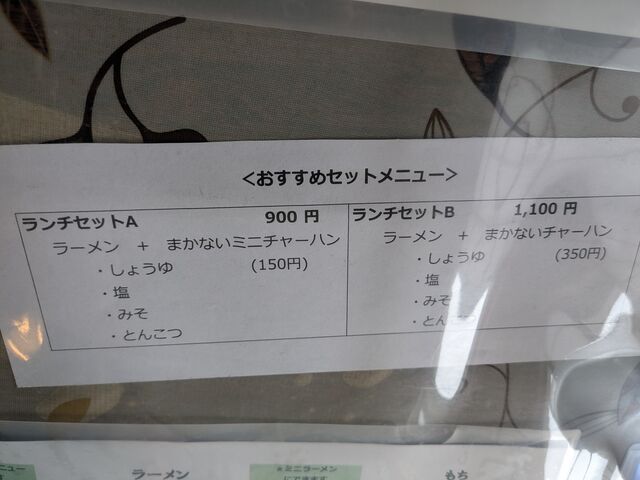 <おすすめセットメニュー>
ランチセットA 900 円
ラーメン + まかないミニチャーハン
・しょうゆ (150円)
・塩
・みそ
・とんこつ
ランチセットB 1,100 円
ラーメン + まかないチャーハン
・しょうゆ (350円)
・塩
・みそ
・とん
ニュー
ラーメン
*ミニラーメン
にできます
もち